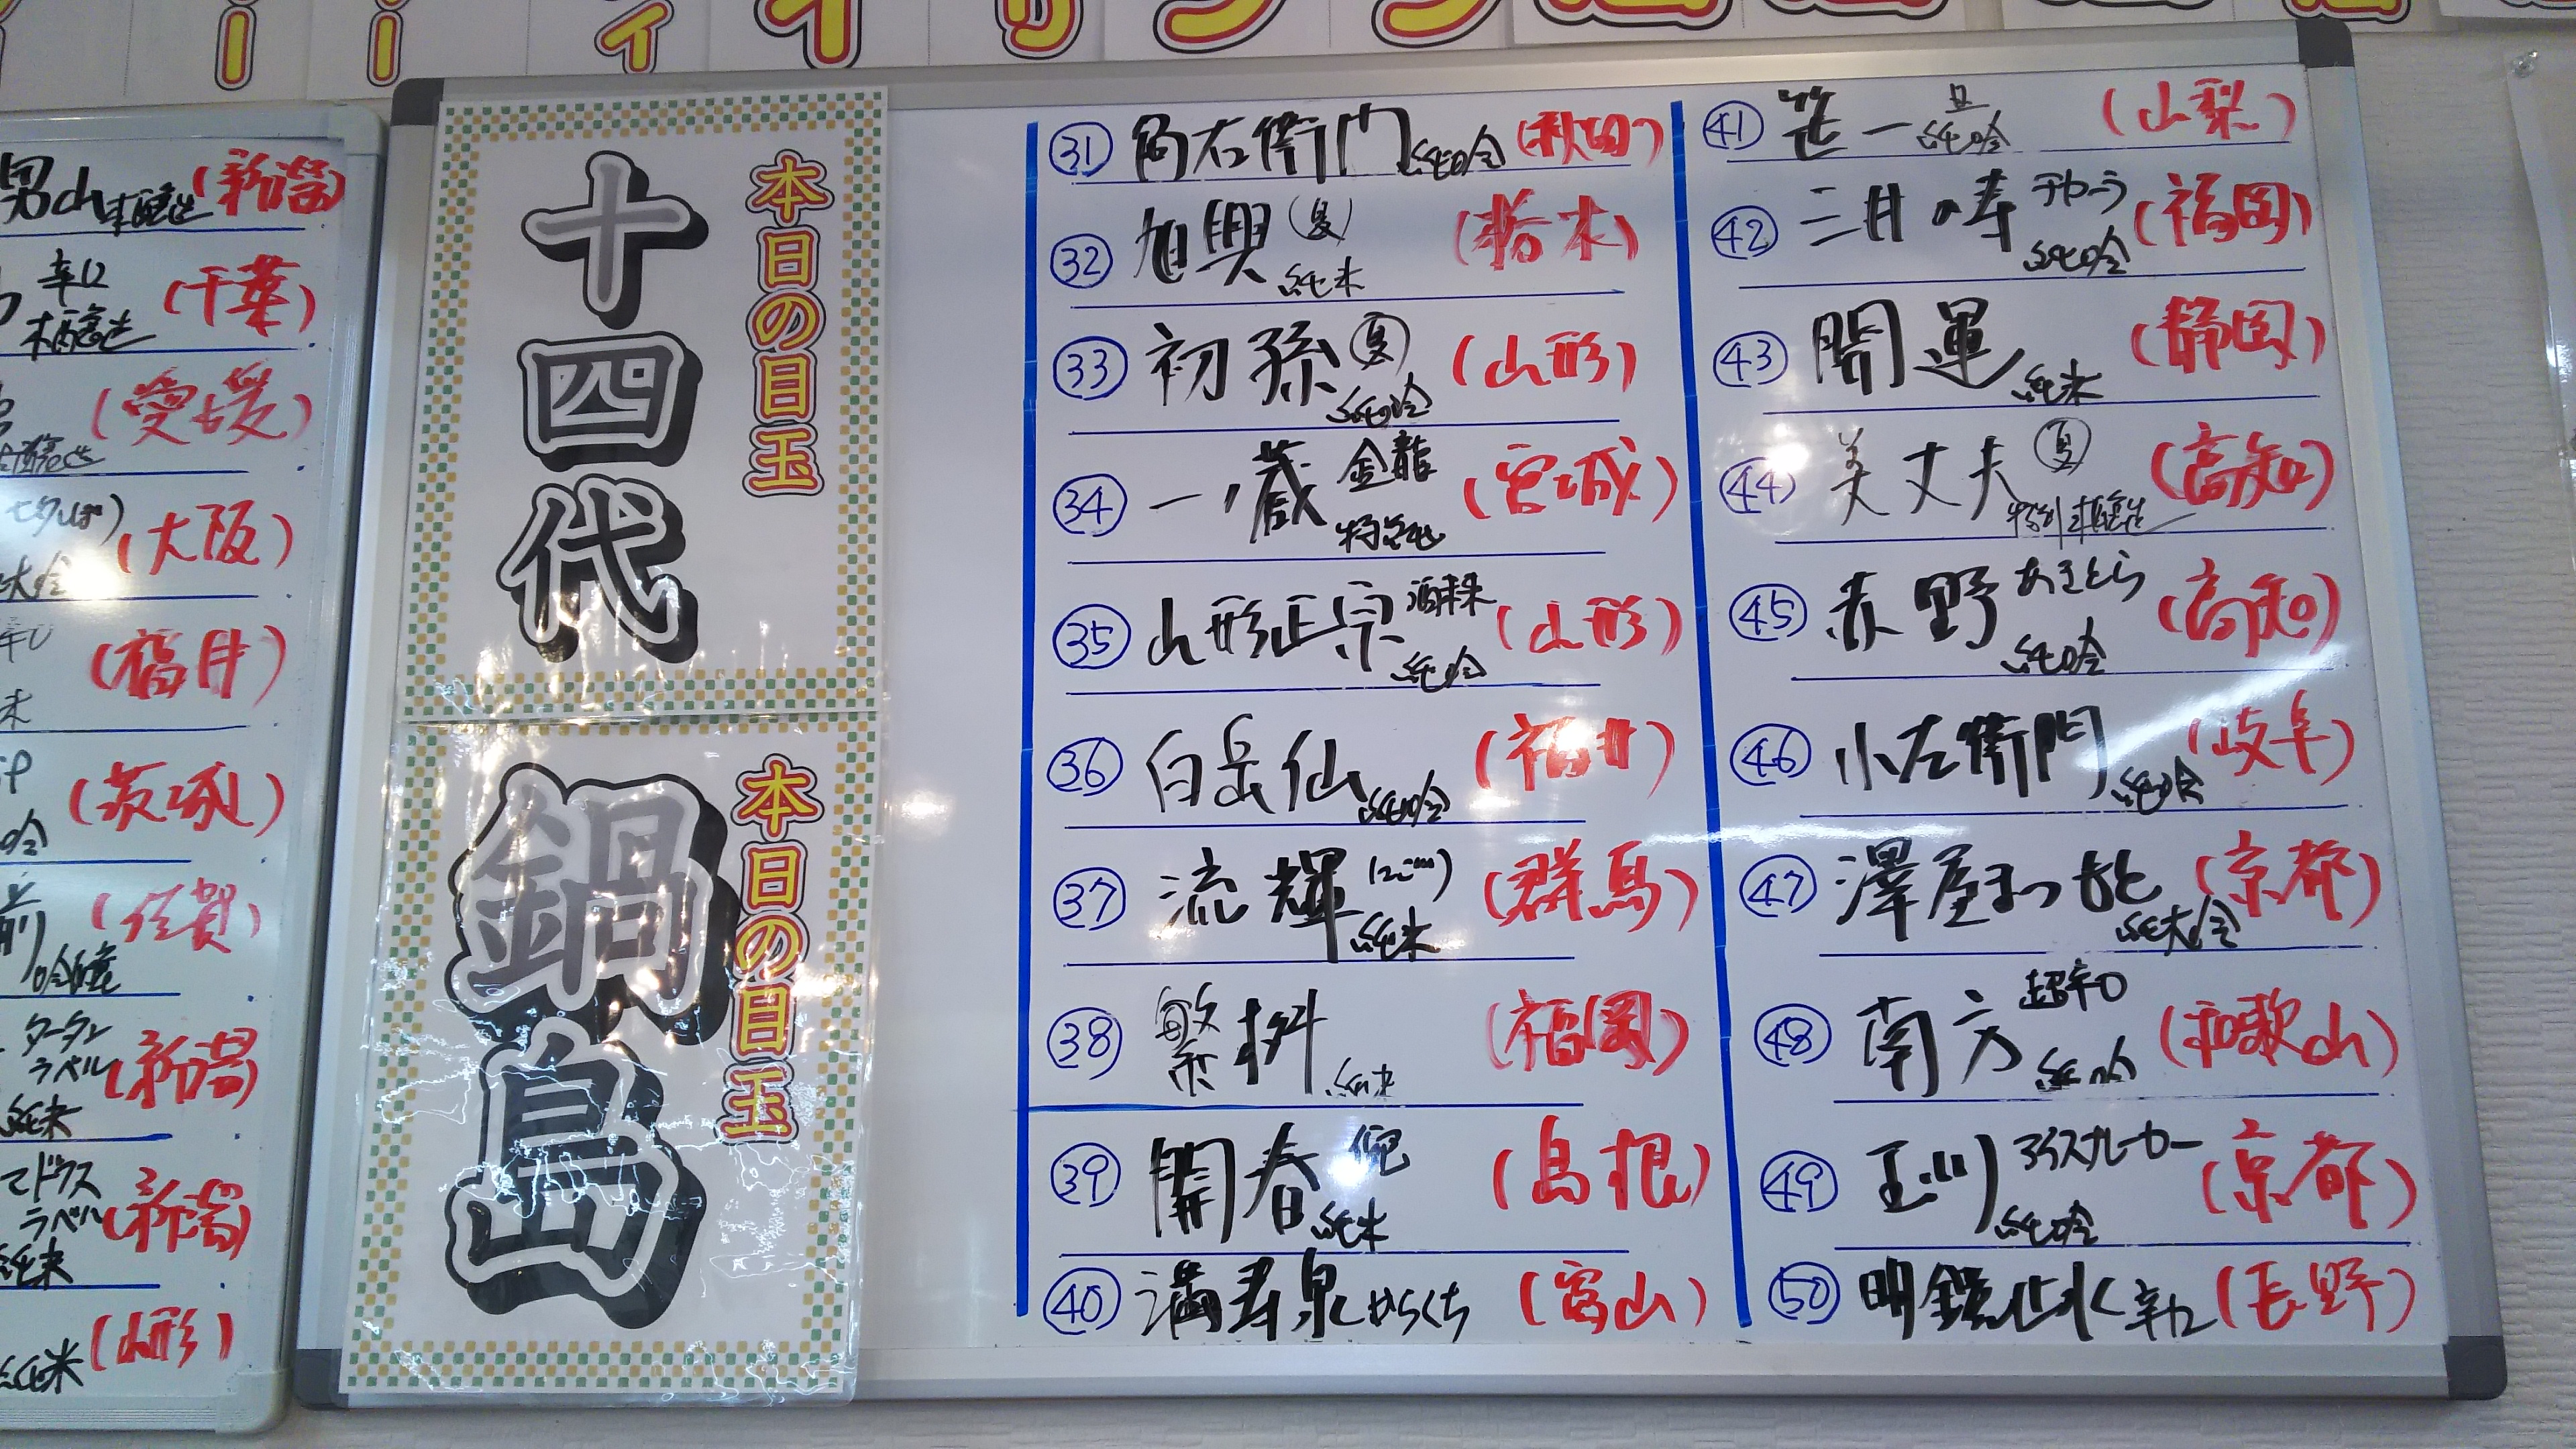 男山 本醸造 (新潟)
辛口 本醸造 (千葉)
(愛媛)
(大阪)
(福井)
(茨城)
前 吟醸 (佐賀)
タータンラベル 純米 (新潟)
マドラスラベル 純米 (新潟)
純米 (山形)
本日の目玉
十四代
本日の目玉
鍋島
㉛ 角右衛門 純吟 (秋田)
㉜ 旭興 (夏) 純米 (栃木)
㉝ 初孫 夏 純吟 (山形)
㉞ 一ノ蔵 金龍 特純 (宮城)
㉟ 山形正宗 酒未来 純吟 (山形)
㊱ 白岳仙 純吟 (福井)
㊲ 流輝 純米 (群馬)
㊳ 繁桝 純米 (福岡)
㊴ 開春 純米 (島根)
㊵ 満寿泉 からくち (富山)
㊶ 笹一 旦 純吟 (山梨)
㊷ 三井の寿 純吟 (福岡)
㊸ 開運 純米 (静岡)
㊹ 美丈夫 夏 特別本醸造 (高知)
㊺ 赤野 あきとら 純吟 (高知)
㊻ 小左衛門 純吟 (岐阜)
㊼ 澤屋まつもと 純大吟 (京都)
㊽ 南方 超辛口 純吟 (和歌山)
㊾ 玉川 アイスブレーカー 純吟 (京都)
㊿ 明鏡止水 辛口 (長野)